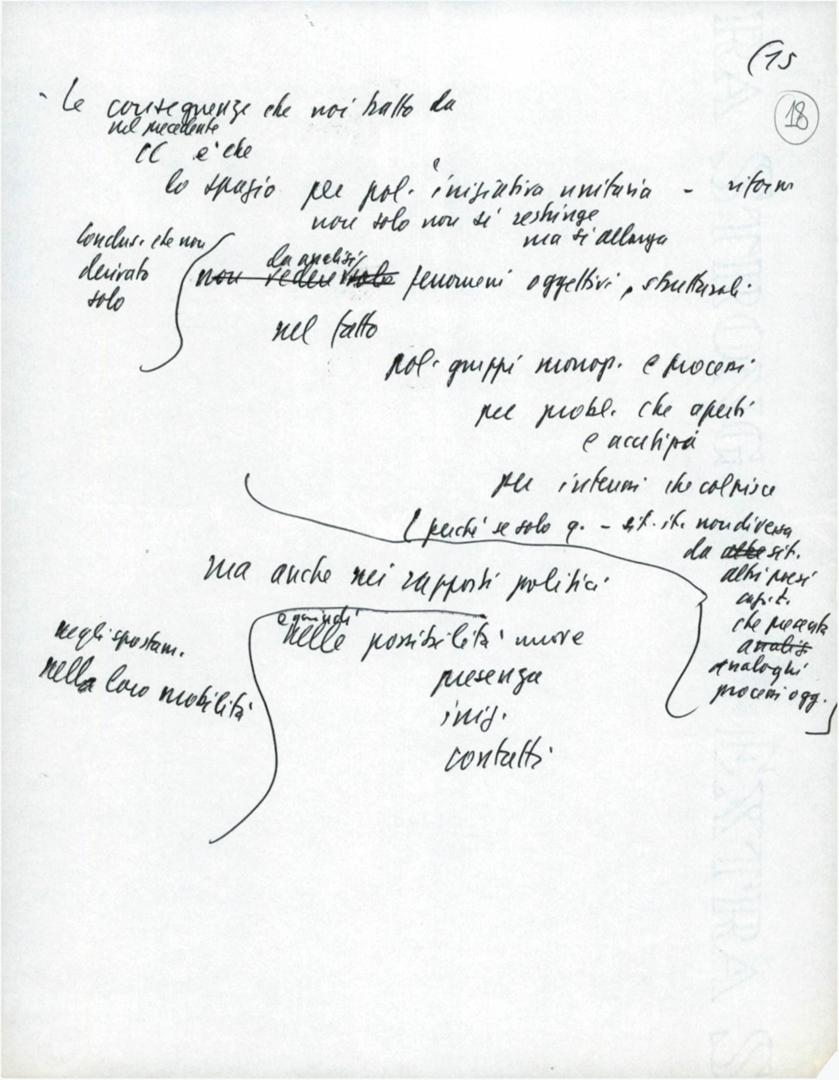 (15
18
- Le conseguenze che noi tratto da
nel precedente
CC è che
lo spazio per pol. iniziativa unitaria - riform
non solo non si restringe
ma si allarga
conclus. che non
derivato
solo
da analisi
non vedere solo fenomeni oggettivi, strutturali
nel fatto
pol. gruppi monop. e processi
per probl. che aperti
e acutizza
per interessi che colpisce
( perché se solo q. - sit. it. non diversa
da altre sit.
altri paesi
capit.
che presenta
analis
analoghi
processi ogg. ]
ma anche nei rapporti politici
e quindi
nelle possibilità nuove
presenza
iniz.
contatti
negli spostam.
nella loro mobilità